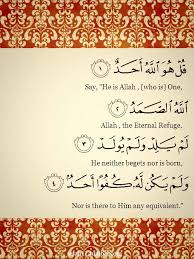 قُلْ هُوَ اللَّهُ أَحَدٌ ﴿١﴾
Say, "He is Allah , [who is] One,
اللَّهُ الصَّمَدُ ﴿٢﴾
Allah , the Eternal Refuge.
لَمْ يَلِدْ وَلَمْ يُولَدْ ﴿٣﴾
He neither begets nor is born,
وَلَمْ يَكُن لَّهُ كُفُوًا أَحَدٌ ﴿٤﴾
Nor is there to Him any equivalent."